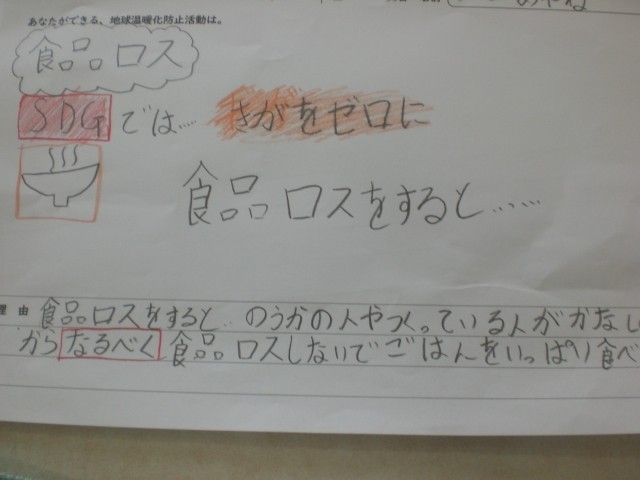 あなたができる、地球温暖化防止活動は。
食品ロス
SDGでは…… きがをゼロに
食品ロスをすると……
理由 食品ロスをすると… のうかの人やつくっている人がかなし
から なるべく 食品ロスしないでごはんをいっぱい食べ